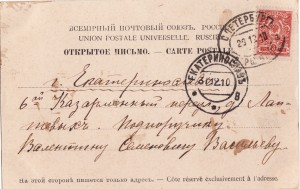 ВСЕМІРНЫЙ ПОЧТОВЫЙ СОЮЗЪ, РОССІЯ
UNION POSTALE UNIVERSELLE. RUSSIE
ОТКРЫТОЕ ПИСЬМО. — CARTE POSTALE
С.ПЕТЕРБУРГЪ
29 12 10
ЕКАТЕРИНОСЛАВЪ
г. Екатеринослав
6ой Казарменный пер. д. Лап-
тевыхъ. Подпоручику
Валентину Семеновичу Васильеву
На этой сторонѣ пишется только адресъ. — Côté réservé exclusivement à l'adresse.